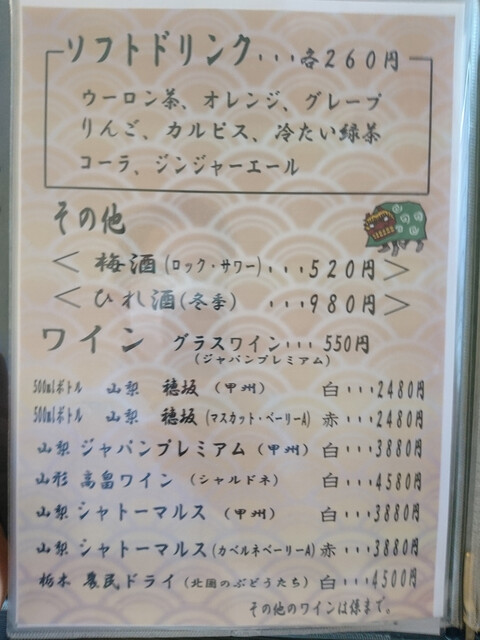 ソフトドリンク・・・各260円
ウーロン茶、オレンジ、グレープ
りんご、カルピス、冷たい緑茶
コーラ、ジンジャーエール
その他
＜ 梅酒(ロック・サワー)・・・520円＞
＜ ひれ酒(冬季) ・・・980円＞
ワイン グラスワイン・・・550円
(ジャパンプレミアム)
500mlボトル 山梨 穂坂 (甲州) 白・・・2480円
500mlボトル 山梨 穂坂 (マスカット・ベーリーA) 赤・・・2480円
山梨 ジャパンプレミアム (甲州) 白・・・3880円
山形 高畠ワイン (シャルドネ) 白・・・4580円
山梨 シャトーマルス (甲州) 白・・・3880円
山梨 シャトーマルス(カベルネベーリーA) 赤・・・3880円
栃木 農民ドライ (北国のぶどうたち) 白・・・4500円
その他のワインは係まで。